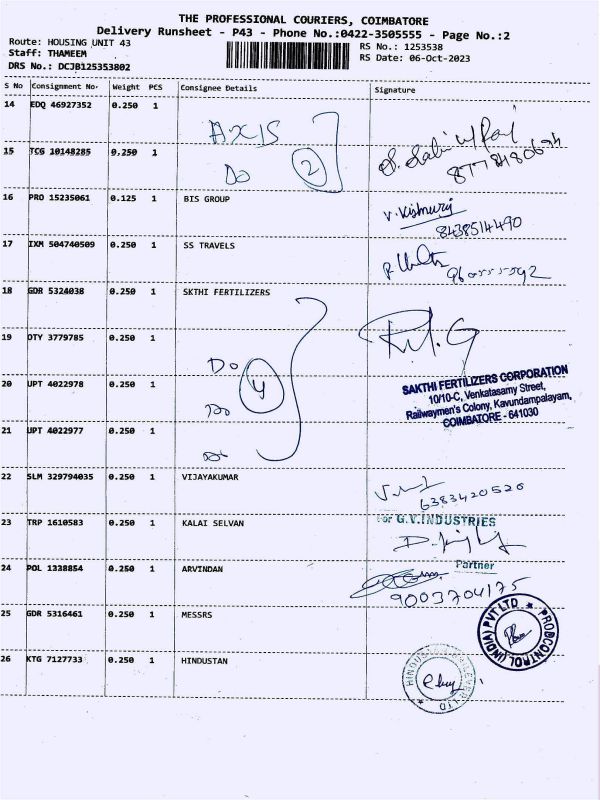 THE PROFESSIONAL COURIERS, COIMBATORE
Delivery Runsheet - P43 - Phone No.:0422-3505555 - Page No.:2
Route: HOUSING UNIT 43
Staff: THAMEEM
DRS No.: DCJB125353802
RS No.: 1253538
RS Date: 06-Oct-2023
S No Consignment No. Weight PCS Consignee Details Signature
14 EDQ 46927352 0.250 1
AXIS
15 TCG 10148285 0.250 1
Do 2
16 PRO 15235061 0.125 1 BIS GROUP
8438514490
17 IXM 504740509 0.250 1 SS TRAVELS
18 GDR 5324038 0.250 1 SKTHI FERTILIZERS
19 OTY 3779785 0.250 1
Do 4
SAKTHI FERTILIZERS CORPORATION
10/10-C, Venkatasamy Street,
Railwaymen's Colony, Kavundampalayam,
COIMBATORE - 641030
20 UPT 4022978 0.250 1
Do
21 UPT 4022977 0.250 1
Do
22 SLM 329794035 0.250 1 VIJAYAKUMAR
6383420520
23 TRP 1610583 0.250 1 KALAI SELVAN
For G.V.INDUSTRIES
Partner
24 POL 1338854 0.250 1 ARVINDAN
9003704175
25 GDR 5316461 0.250 1 MESSRS
PROBCONTROL (INDIA) PVT LTD
26 KTG 7127733 0.250 1 HINDUSTAN